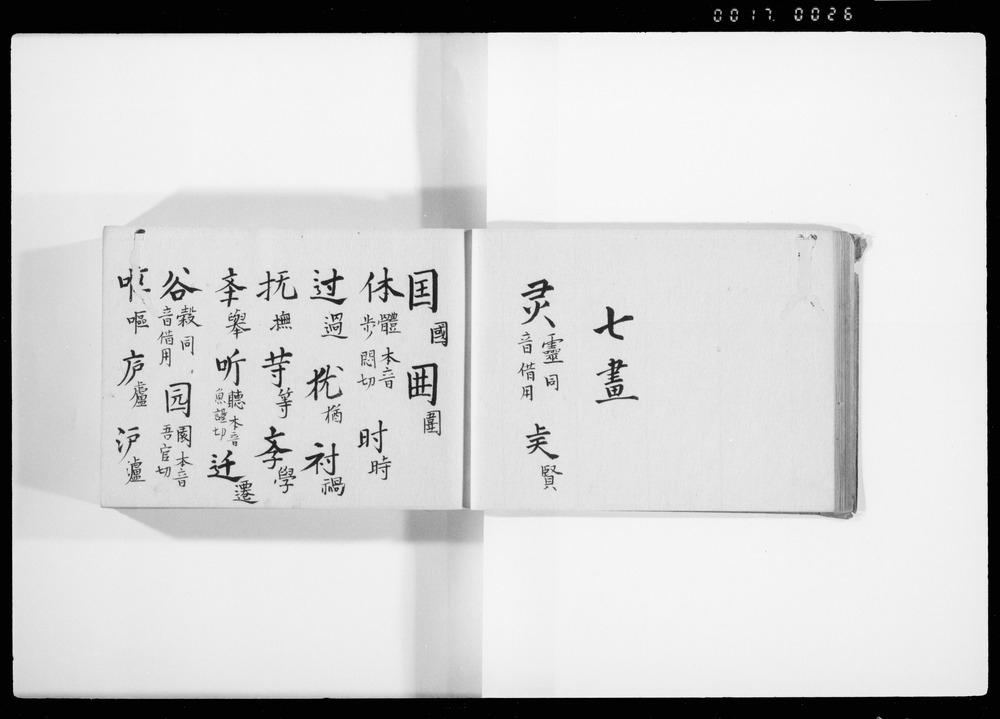 0017. 0026
七畫
灵 靈同音借用 賢
囯 國 囲 圍
体 體本音步悶切 时 時
过 過 犹 猶 衬 禍
抚 撫 䒭 等 斈 學
擧 听 聽本音魚謹切 迁 遷
谷 穀同音借用 园 園本音吾官切
嘔 庐 廬 沪 瀘